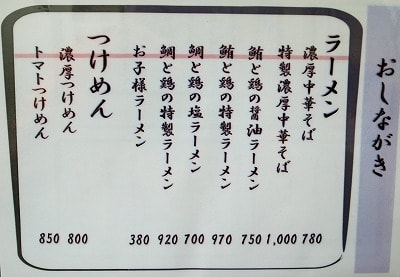 おしながき
ラーメン
濃厚中華そば 780
特製濃厚中華そば 1,000
鮪と鶏の醤油ラーメン 750
鮪と鶏の特製ラーメン 970
鯛と鶏の塩ラーメン 700
鯛と鶏の特製ラーメン 920
お子様ラーメン 380
つけめん
濃厚つけめん 800
トマトつけめん 850